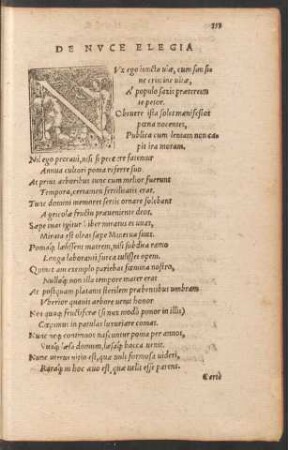 DE NVCE ELEGIA
Vx ego iuncta uiæ, cum sim si-
ne crimine uitæ,
A populo saxis prætereun
te petor.
Obruere ista solet manifestos
pœna nocentes,
Publica cum lentam non ca-
pit ira moram.
Nil ego peccaui, nisi si peccare fatemur
Annua cultori poma referre suo.
At prius arboribus tunc cum melior fuerunt
Tempora, certamen fertilitatis erat.
Tunc domini memores sertis ornare solebant
Agricolæ fructu præueniente deos.
Sæpe tuas igitur Liber miratus es uuas,
Mirata est oleas sæpe Minerua suas.
Pomaq; læsissent matrem, nisi subdita ramo
Longa laboranti furca tulisset opem.
Quin et iam exemplo pariebat fœmina nostro,
Nullaq; non illa tempore mater erat.
At postquam platanis sterilem præbentibus umbram
Vberior quauis arbore uenit honor.
Nos quoq; fructiferæ (si nux modo ponor in illis)
Cœpimus in patulas luxuriare comas.
Nunc neq; continuos nascuntur poma per annos,
Vuaq; læsa domum, læsaq; bacca uenit.
Nunc uterum uitiat, quæ uult formosa uideri,
Raraq; in hoc æuo est, quæ uelit esse parens.
Certè